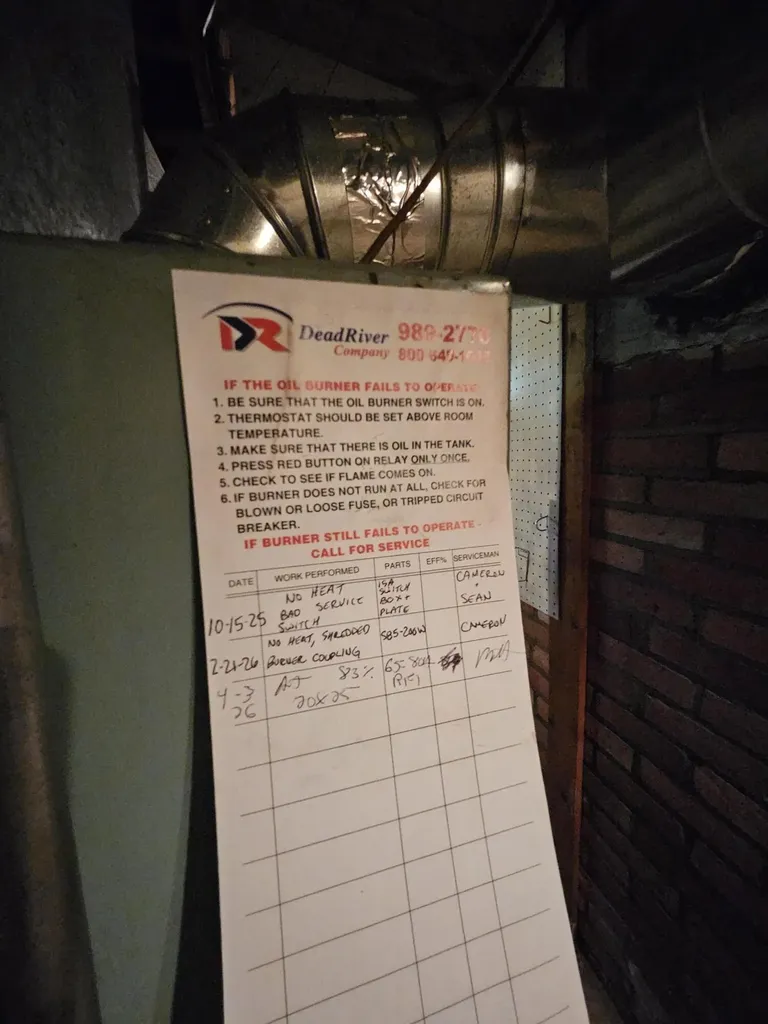 DR DeadRiver 989-27
Company 800 640-1
IF THE OIL BURNER FAILS TO OPERATE
1. BE SURE THAT THE OIL BURNER SWITCH IS ON.
2. THERMOSTAT SHOULD BE SET ABOVE ROOM
TEMPERATURE.
3. MAKE SURE THAT THERE IS OIL IN THE TANK.
4. PRESS RED BUTTON ON RELAY ONLY ONCE.
5. CHECK TO SEE IF FLAME COMES ON.
6. IF BURNER DOES NOT RUN AT ALL, CHECK FOR
BLOWN OR LOOSE FUSE, OR TRIPPED CIRCUIT
BREAKER.
IF BURNER STILL FAILS TO OPERATE -
CALL FOR SERVICE
DATE WORK PERFORMED PARTS EFF% SERVICEMAN
10-15-25 NO HEAT BAD SERVICE SWITCH 15A SWITCH BOX + PLATE CAMERON + SEAN
2-21-26 NO HEAT, SHREDDED BURNER COUPLING CAMERON
4-3 26 83% 20x25